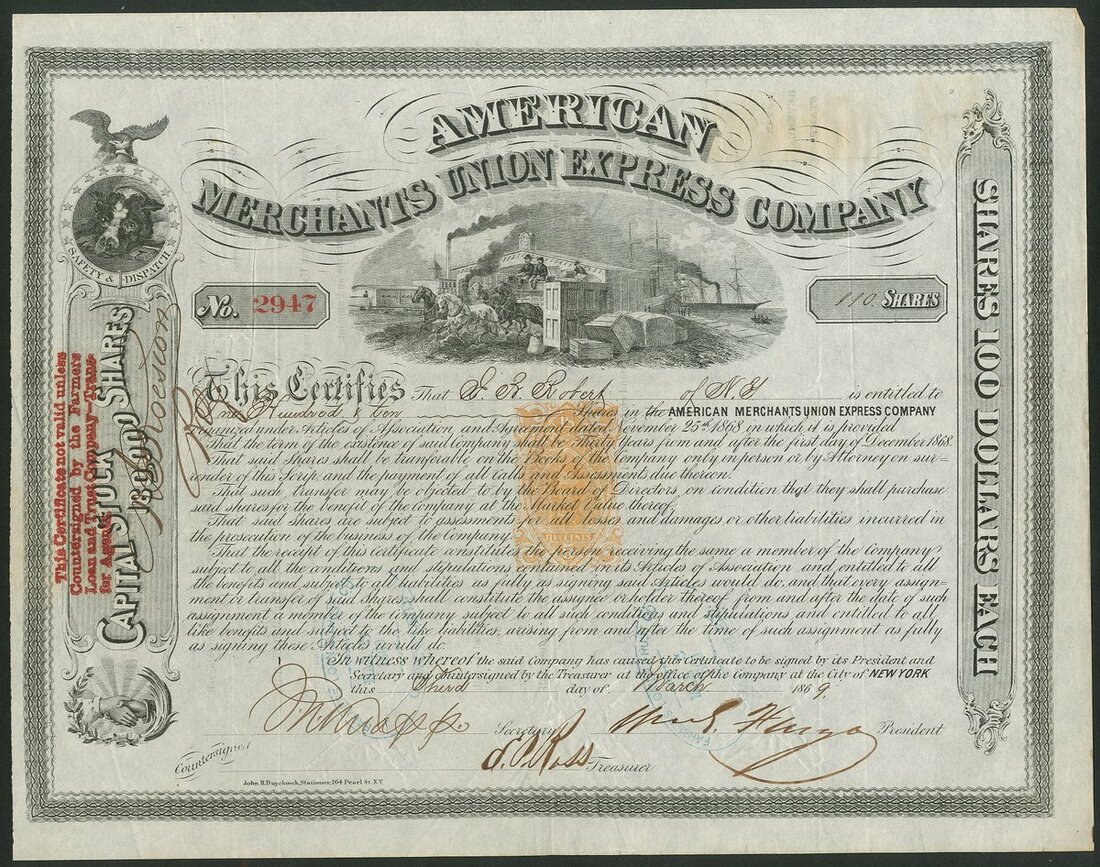 AMERICAN
MERCHANTS UNION EXPRESS COMPANY
SAFETY & DISPATCH
No. 2947
110 SHARES
CAPITAL STOCK SHARES
This Certificate not valid unless
Countersigned by the Farmers
Loan and Trust Company—Trans-
fer Agents
SHARES 100 DOLLARS EACH
This Certifies That of N.Y is entitled to
One Hundred & Ten Shares in the AMERICAN MERCHANTS UNION EXPRESS COMPANY
under Articles of Association, and Agreement dated November 25th 1868 in which it is provided
That the term of the existence of said Company shall be Thirty Years from and after the first day of December 1868.
That said Shares shall be transferable on the Books of the Company only in person or by Attorney on sur-
render of this Scrip and the payment of all Calls and Assessments due thereon.
That such transfer may be objected to by the Board of Directors, on condition that they shall purchase
said shares for the benefit of the Company at the Market Value thereof,
That said Shares are subject to assessment for all losses and damages or other liabilities incurred in
the prosecution of the business of the Company
FIVE CENTS
That the receipt of this Certificate constitutes the person receiving the same a member of the Company,
subject to all the conditions and stipulations contained in its Articles of Association and entitled to all
the benefits and subject to all liabilities as if his signing said Articles would do, and that every assign-
ment or transfer of said Shares shall constitute the assignee or holder thereof from and after the date of such
assignment a member of the company subject to all such conditions and stipulations and entitled to all
like benefits and subject to the like liabilities, arising from and after the time of such assignment as fully
as signing these Articles would do.
In witness whereof the said Company has caused this Certificate to be signed by its President and
Secretary and countersigned by the Treasurer at the office of the Company at the City of NEW YORK
this Third day of March 1869.
Secretary Wm G. Fargo President
Ross Treasurer
Countersigned
John R. Duyckinck, Stationer, 164 Pearl St. N.Y.